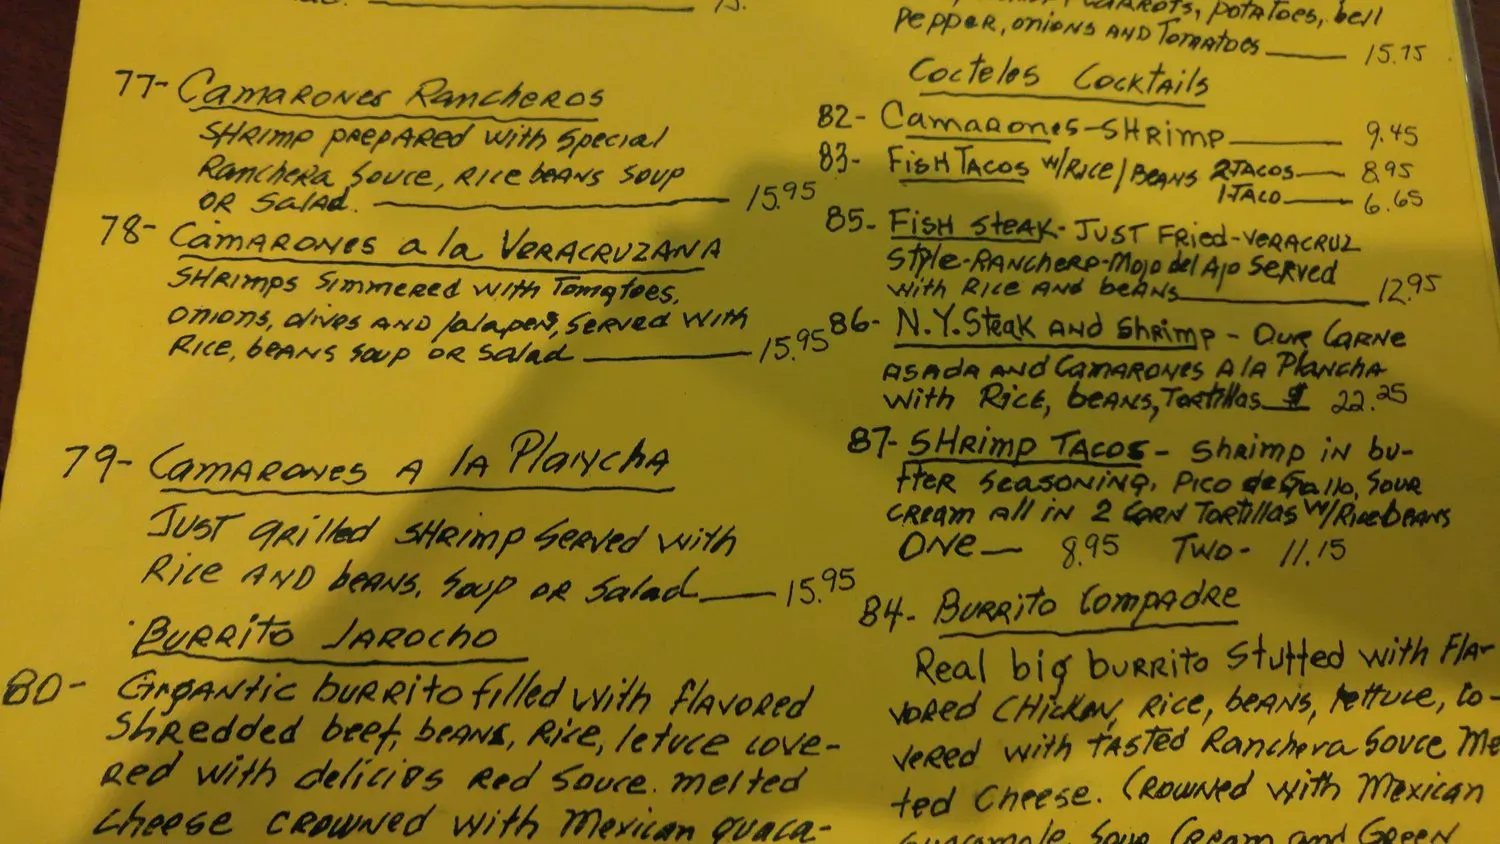 15.
77- Camarones Rancheros
Shrimp prepared with special
Ranchera Souce, Rice beans soup
or salad. 15.95
78- Camarones a la Veracruzana
Shrimps simmered with Tomatoes,
onions, olives and jalapens, served with
Rice, beans soup or salad 15.95
79- Camarones A la Plancha
Just grilled shrimp served with
Rice and beans, soup or salad 15.95
Burrito Jarocho
80- Gigantic burrito filled with flavored
shredded beef, beans, rice, letuce cove-
red with delicios red souce. melted
cheese crowned with Mexican guaca-
carrots, potatoes, bell
pepper, onions and Tomatoes 15.75
Cocteles Cocktails
82- Camarones-Shrimp 9.45
83- Fish Tacos w/Rice/Beans 2 Tacos 8.95
1 Taco 6.65
85- Fish Steak- Just Fried-Veracruz
Style-Ranchero-Mojo del Ajo Served
with Rice and beans 12.95
86- N.Y. Steak and Shrimp - Our Carne
asada and Camarones A la Plancha
with Rice, beans, Tortillas $ 22.25
87- Shrimp Tacos - Shrimp in bu-
tter seasoning, Pico de Gallo, Sour
cream all in 2 corn Tortillas w/Rice beans
One 8.95 Two - 11.15
84- Burrito Compadre
Real big burrito stuffed with fla-
vored Chicken, Rice, beans, lettuce, co-
vered with tasted Ranchera Souce Me
ted Cheese. Crowned with Mexican
Guacamole, Sour Cream and Green